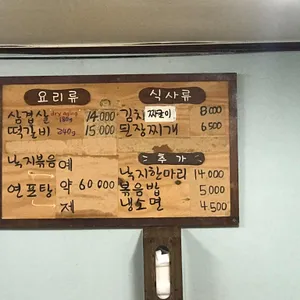 요리류
삼겹살 dry aging 180g 14.000
떡갈비 240g 15.000
낙지볶음 예
연포탕 약 60.000
제
식사류
김치 찌글이 8.000
된장찌개 6.500
추가
낙지한마리 14.000
볶음밥 5.000
냉소면 4.500